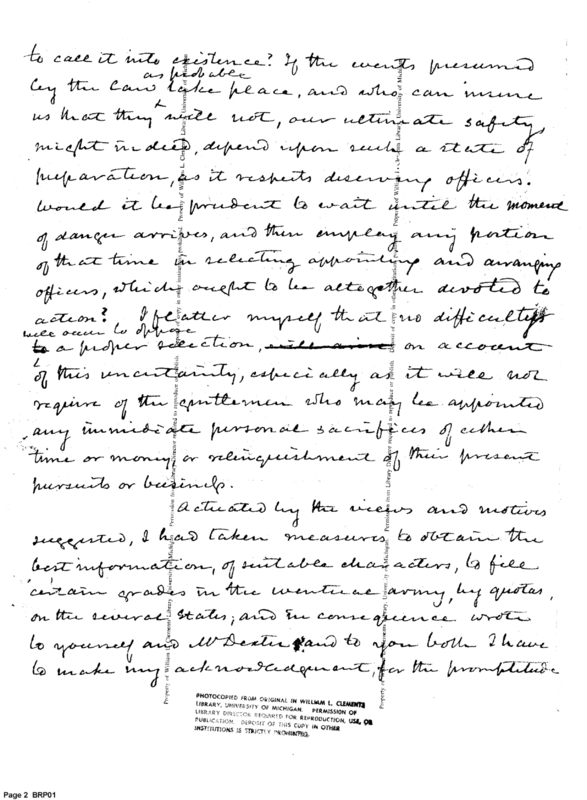 to call it into existence? If the events presumed
as probable
by the law take place, and who can insure
us that they will not, our ultimate safety
might indeed, depend upon such a state of
preparation, as it respects deserving officers.
Would it be prudent to wait until the moment
of danger arrives, and then employ any portion
of that time in selecting appointing and arranging
officers, which ought to be altogether devoted to
action? I flatter myself that no difficultys
will occur to oppose
to a proper selection, will arise on account
of this uncertainty, especially as it will not
require of the gentlemen who may be appointed
any immidiate personal sacrifices of either
time or money or relinquishment of their present
pursuits or business.
Actuated by the views and motives
suggested, I had taken measures, to obtain the
best information, of suitable characters, to fill
certain grades in the eventual army, by quotas,
on the several States; and in consequence wrote
to yourself and Mr Dexter, and to you both I have
to make my acknowledgement, for the promptitude
PHOTOCOPIED FROM ORIGINAL IN WILLIAM L. CLEMENTS
LIBRARY, UNIVERSITY OF MICHIGAN. PERMISSION OF
LIBRARY DIRECTOR REQUIRED FOR REPRODUCTION, USE, OR
PUBLICATION. DEPOSIT OF THIS COPY IN OTHER
INSTITUTIONS IS STRICTLY PROHIBITED.
Page 2 BRP01